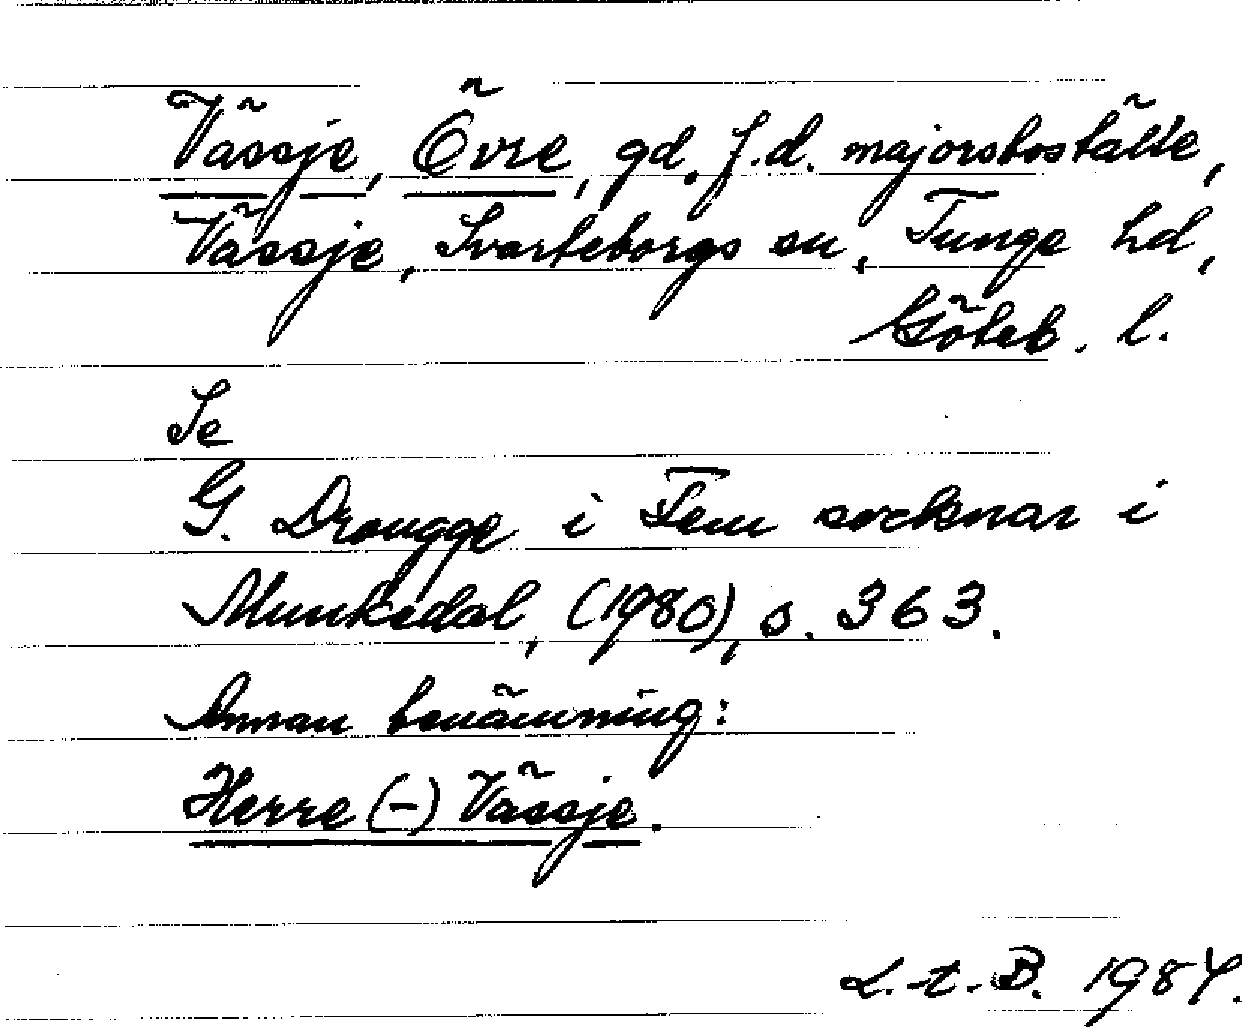 Vässje, Övre, gd. f.d. majorsboställe,
Vässje, Svarteborgs sn, Tunge hd,
Göteb. l.
Se
G. Drougge i Fem socknar i
Munkedal, (1980), s. 363.
Annan benämning:
Herre (-) Vässje.
L.-t.-B. 1984.